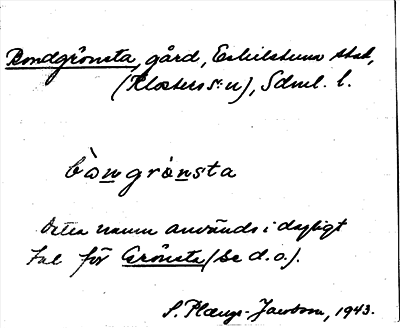 Bondgrönsta, gård, Eskilstuna stad,
(Klosters s:n), Sdml. l.
bòngrònsta
Detta namn används i dagligt
tal för Grönsta (se d.o.).
S. Plæng-Jacobson, 1943.